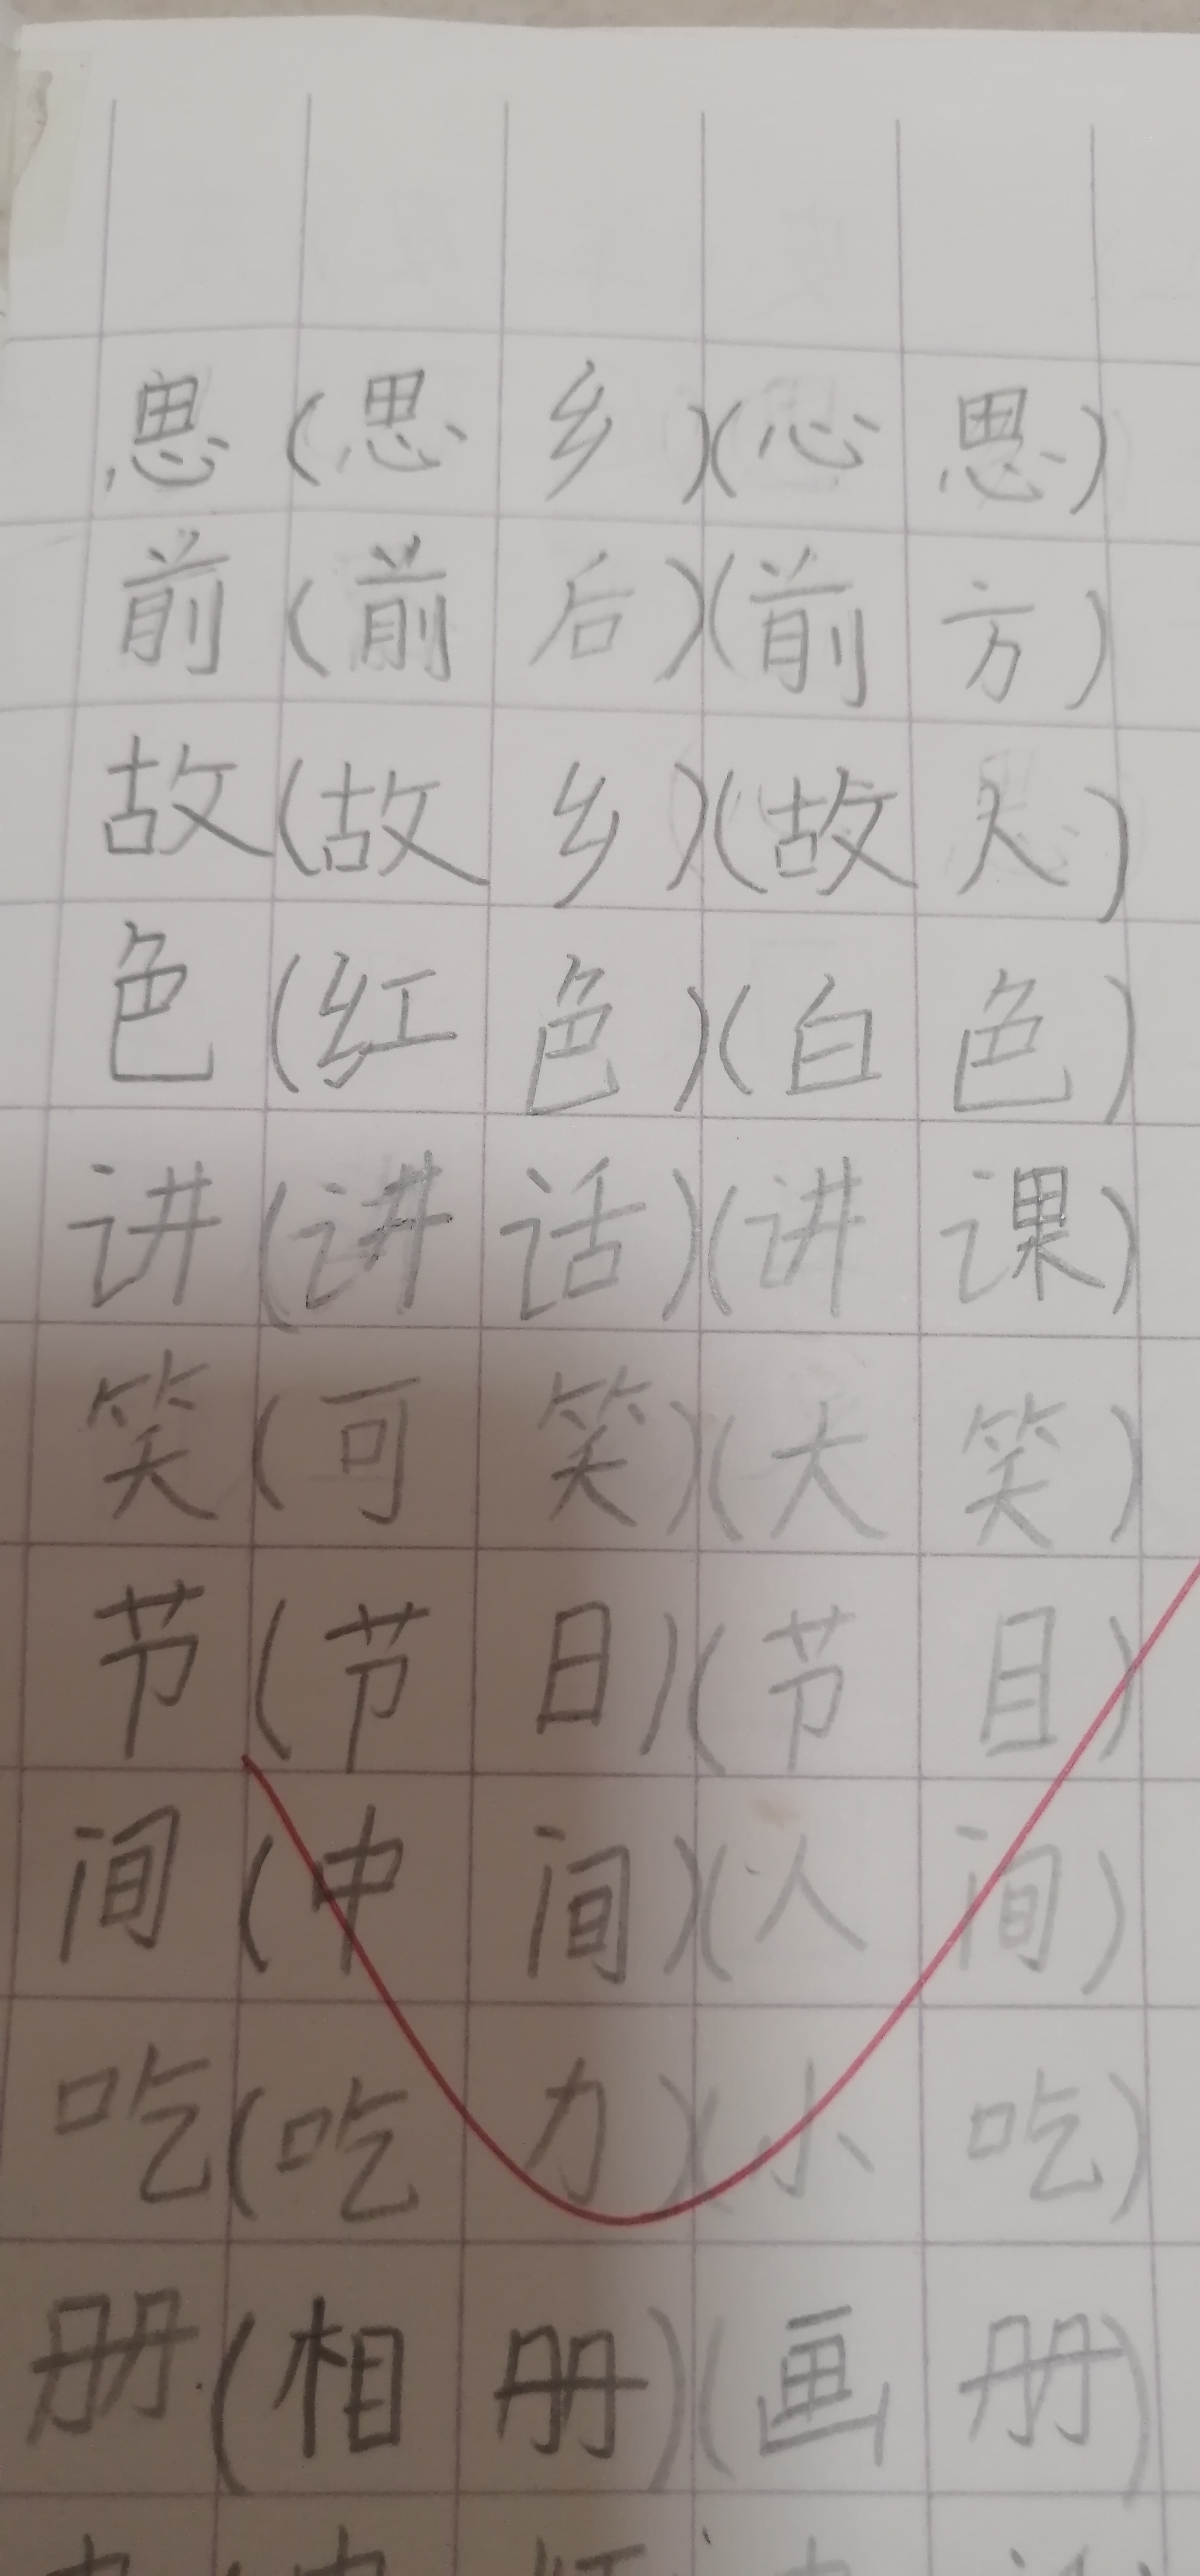 思(思乡)(心思)
前(前后)(前方)
故(故乡)(故人)
色(红色)(白色)
讲(讲话)(讲课)
笑(可笑)(大笑)
节(节日)(节目)
间(中间)(人间)
吃(吃力)(小吃)
册(相册)(画册)